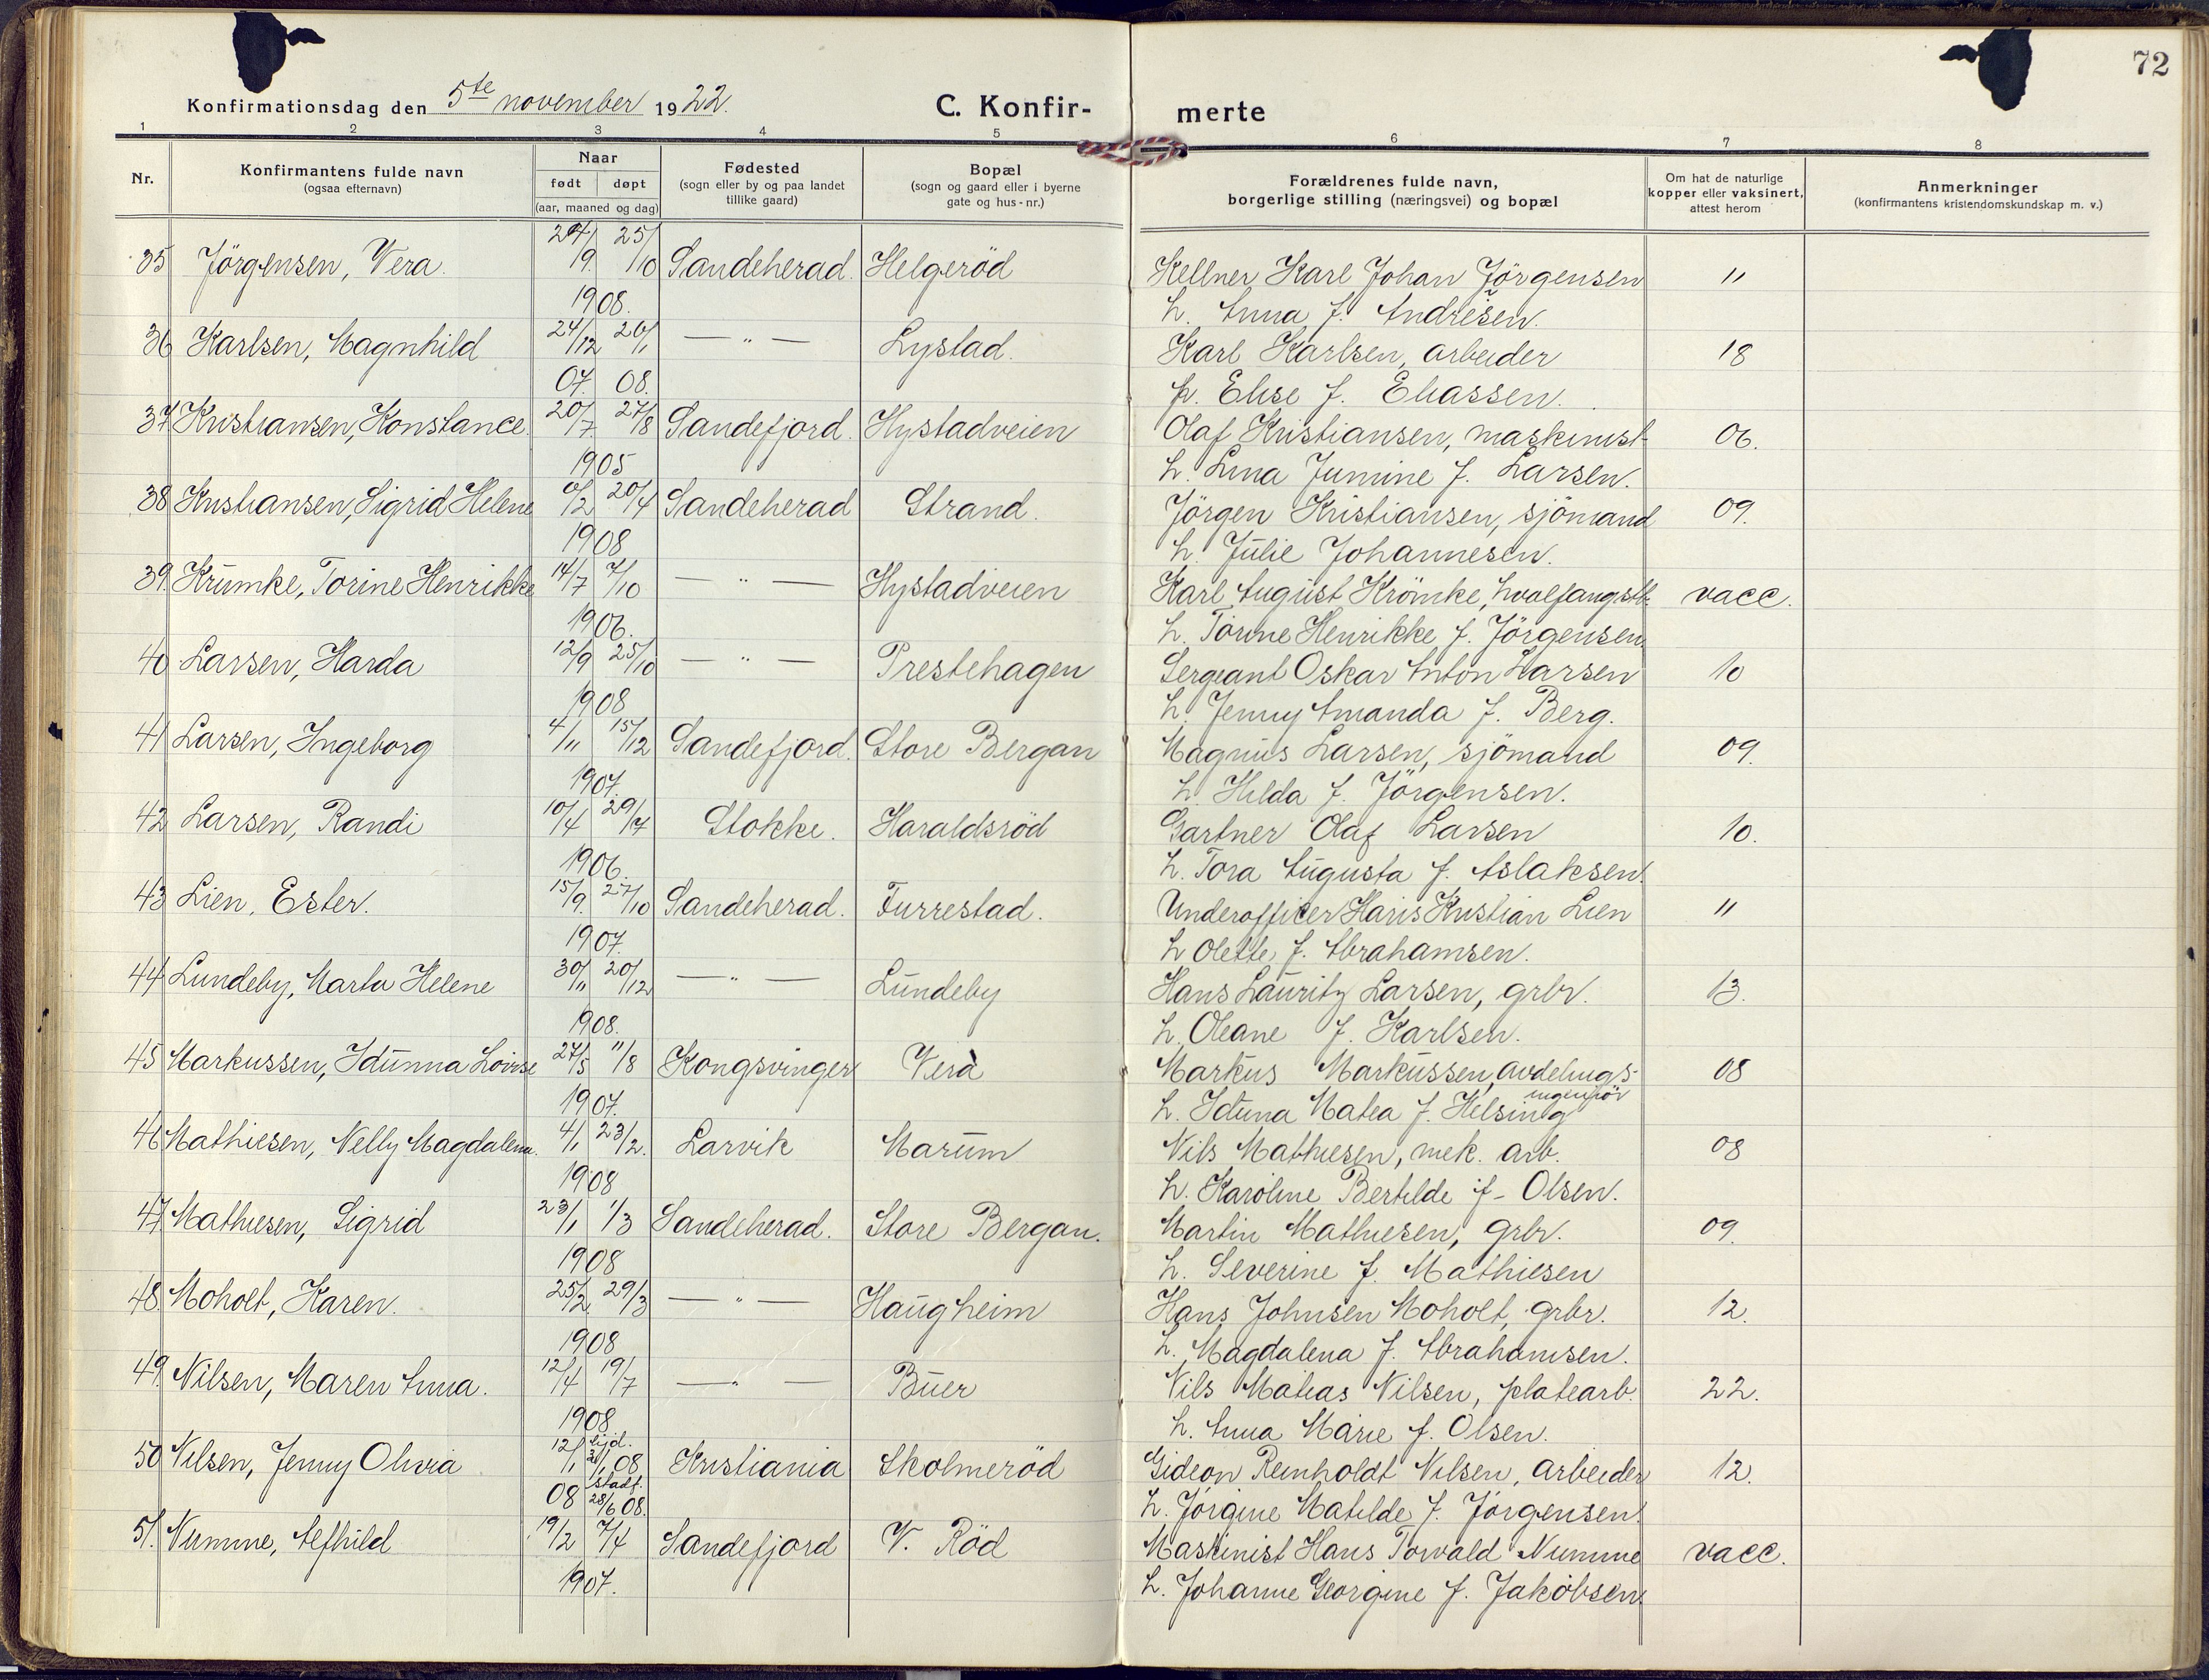 72
Konfirmationsdag den 5te november 1922.
C. Konfirmerte
1 2 3 4 5 6 7 8
Nr.
Konfirmantens fulde navn
(ogsaa efternavn)
Naar
født døpt
(aar, maaned og dag)
Fødested
(sogn eller by og paa landet
tillike gaard)
Bopæl
(sogn og gaard eller i byerne
gate og hus-nr.)
Forældrenes fulde navn,
borgerlige stilling (næringsvei) og bopæl
Om hat de naturlige
kopper eller vaksinert,
attest herom
Anmerkninger
(konfirmantens kristendomskundskap m. v.)
35 Jörgensen, Vera. 24/9. 25/10 Sandeherad. Helgeröd Kellner Karl Johan Jörgensen 11
1908. h. Anna f. Andresen.
36 Karlsen, Magnhild 24/12 20/1 — " — Lystad. Karl Karlsen, arbeider 18
07. 08. h. Elise f. Eliassen.
37 Kristiansen, Konstance. 20/7. 27/8 Sandefjord. Hystadveien Olaf Kristiansen, maskinist 06.
1905 h. Lina Jumine f. Larsen.
38 Kristiansen, Sigrid Helene /2 20/4 Sandeherad Strand. Jörgen Kristiansen, sjömand 09.
1908 h. Julie Johannesen.
39. Krümke, Torine Henrikke 14/7 7/10 — " — Hystadveien Karl August Krömke, hvalfangstb. vacc.
1906. h. Torine Henrikke f. Jörgensen.
40 Larsen, Harda 12/9 25/10 — " — Prestehagen Sergeant Oskar Anton Larsen 10
1908 h. Jenny Amanda f. Berg.
41 Larsen, Ingeborg 4/11 15/12 Sandefjord. Store Bergan Magnus Larsen, sjömand 09.
1907. h. Hilda f. Jörgensen.
42 Larsen, Randi 10/4 29/7 Stokke. Haraldsröd Gartner Olaf Larsen 10.
1906. h. Tora Augusta f. Aslaksen.
43 Lien, Ester. 15/9. 27/10 Sandeherad. Furrestad. Underofficer Hans Kristian Lien 11
1907. h Olette f. Abrahamsen.
44 Lundeby, Marta Helene 30/11 20/12 — " — Lundeby Hans Lauritz Larsen, grbr. 13.
1908. h. Oleane f. Karlsen.
45 Markussen, Idunna Lovise 27/5 11/8 Kongsvinger Vera Markus Markussen, avdelings- 08
ingeniör
1907. h. Iduna Matea f. Helsing
46 Mathiesen, Nelly Magdalena. 4/1 23/2. Larvik Marum Nils Mathiesen, mek. arb. 08
1908 h. Karoline Bertilde f- Olsen.
47 Mathiesen, Sigrid 23/1 1/3 Sandeherad. Store Bergan. Martin Mathiesen, grbr. 09.
1908 h. Severine f. Mathiesen
48 Moholt, Karen. 25/2 29/3 — " — Haugheim Hans Johnsen Moholt, grbr. 12.
1908 h. Magdalena f. Abrahamsen.
49. Nilsen, Maren Anna. 12/4 19/7 — " — Buer Nils Matias Nilsen, platearb. 22.
1908 h. Anna Marie f. Olsen.
50 Nilsen, Jenny Olivia 12/1 08 hjd. /1 08 stadf. 28/6 08. Kristiania Skolmeröd Gideon Reinholdt Nilsen, arbeider 12.
h. Jörgine Matilde f. Jörgensen.
51. Numme, Alfhild 19/2 7/4 Sandefjord V. Röd Maskinist Hans Torvald Numme vacc.
1907. h. Johanne Georgine f. Jakobsen.